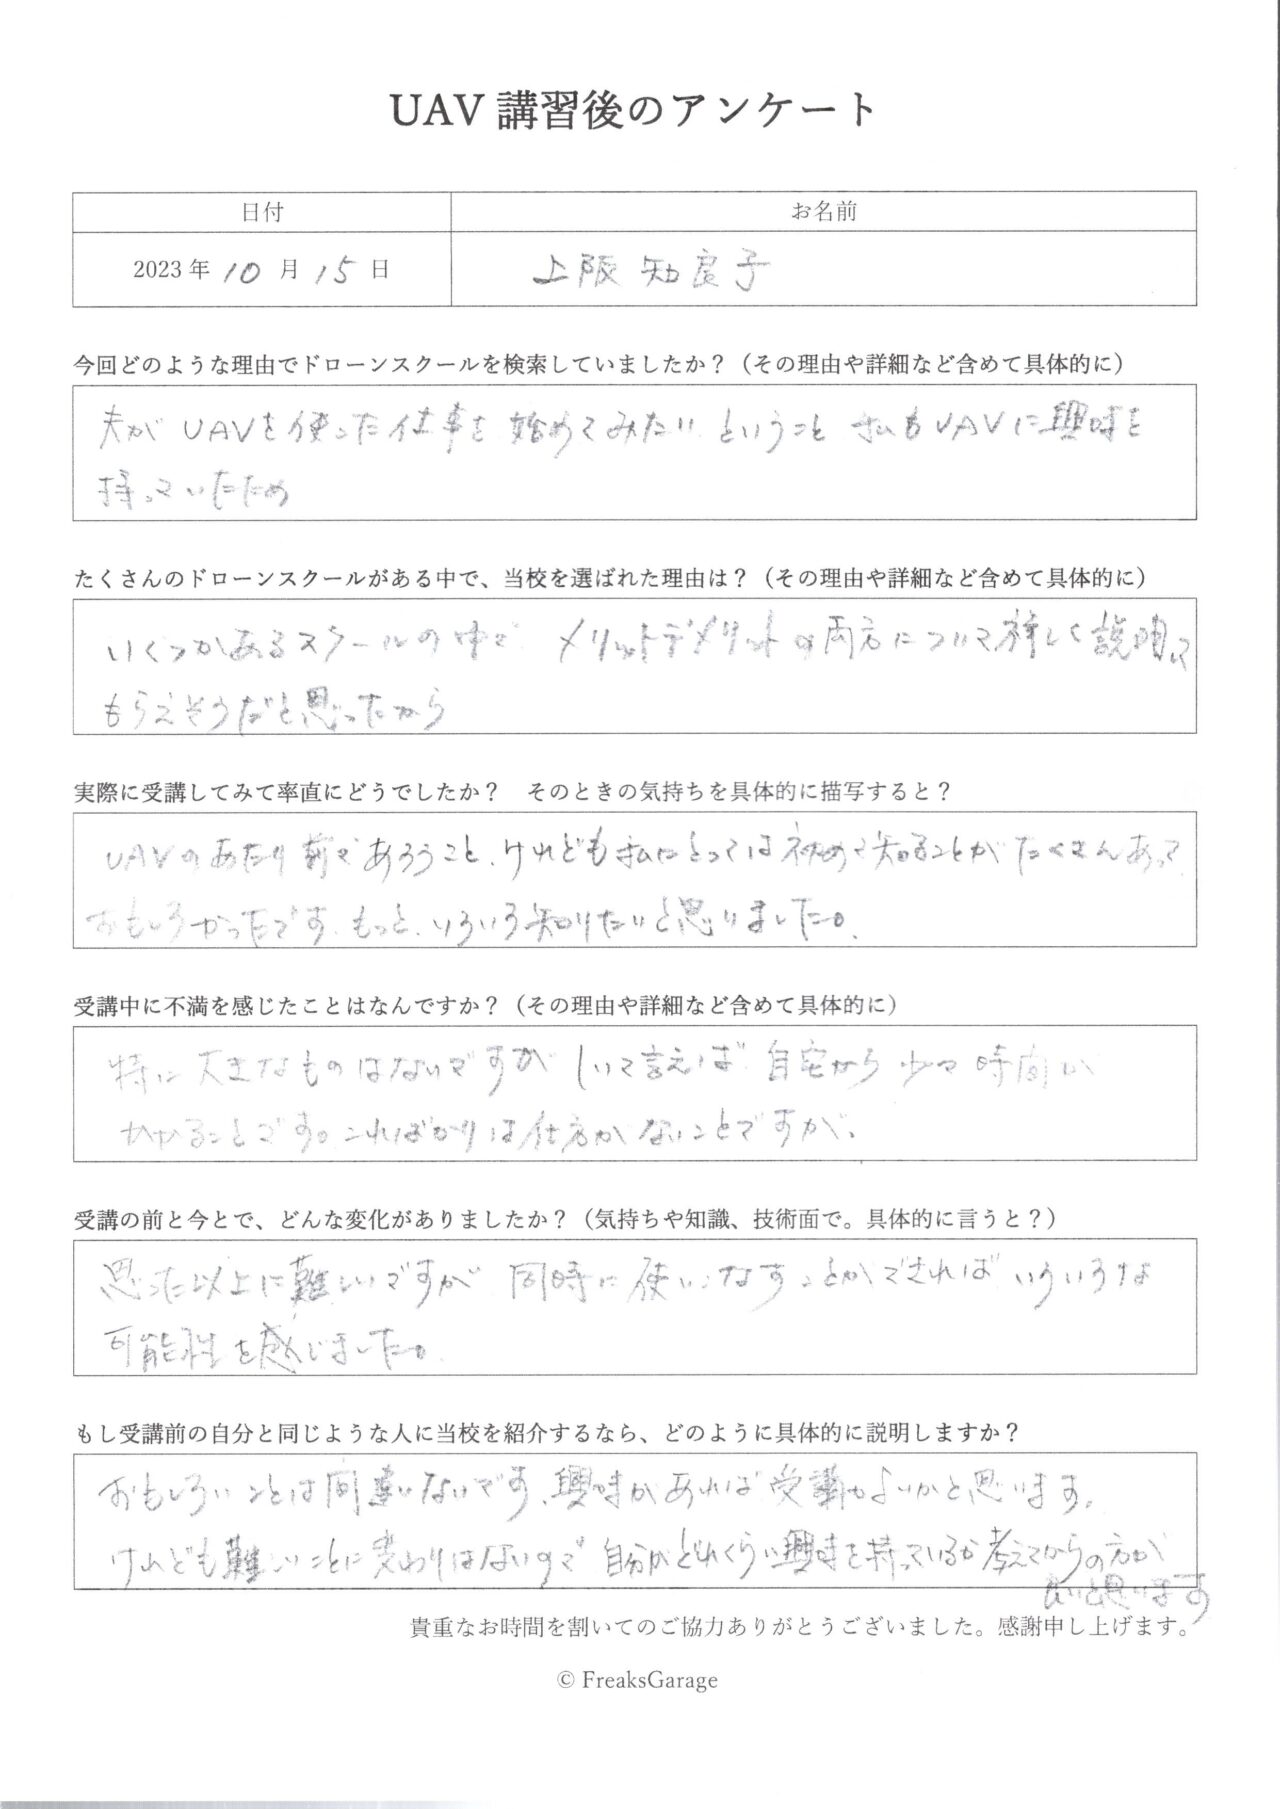 UAV 講習後のアンケート
日付 お名前
2023 年 10 月 15 日 上阪 知良子
今回どのような理由でドローンスクールを検索していましたか？（その理由や詳細など含めて具体的に）
夫が UAVを使った仕事を始めてみたいということ 私もUAVに興味を
持っていたため
たくさんのドローンスクールがある中で、当校を選ばれた理由は？（その理由や詳細など含めて具体的に）
いくつかあるスクールの中で メリットデメリットの両方について詳しく説明して
もらえそうだと思ったから
実際に受講してみて率直にどうでしたか？　そのときの気持ちを具体的に描写すると？
UAVのあたり前であろうこと、けれども私にとっては初めて知ることがたくさんあって
おもしろかったです。もっと、いろいろ知りたいと思いました。
受講中に不満を感じたことはなんですか？（その理由や詳細など含めて具体的に）
特に大きなものはないですが しいて言えば 自宅から 少々時間が
かかることです。こればかりは仕方がないことですが。
受講の前と今とで、どんな変化がありましたか？（気持ちや知識、技術面で。具体的に言うと？）
思った以上に難しいですが 同時に使いこなすことができれば いろいろな
可能性を感じました。
もし受講前の自分と同じような人に当校を紹介するなら、どのように具体的に説明しますか？
おもしろいことは間違いないです、興味があれば受講もよいかと思います。
けれども難しいことに変わりはないので 自分がどれくらい興味を持っているか考えてからの方が
良いと思います
貴重なお時間を割いてのご協力ありがとうございました。感謝申し上げます。
© FreaksGarage